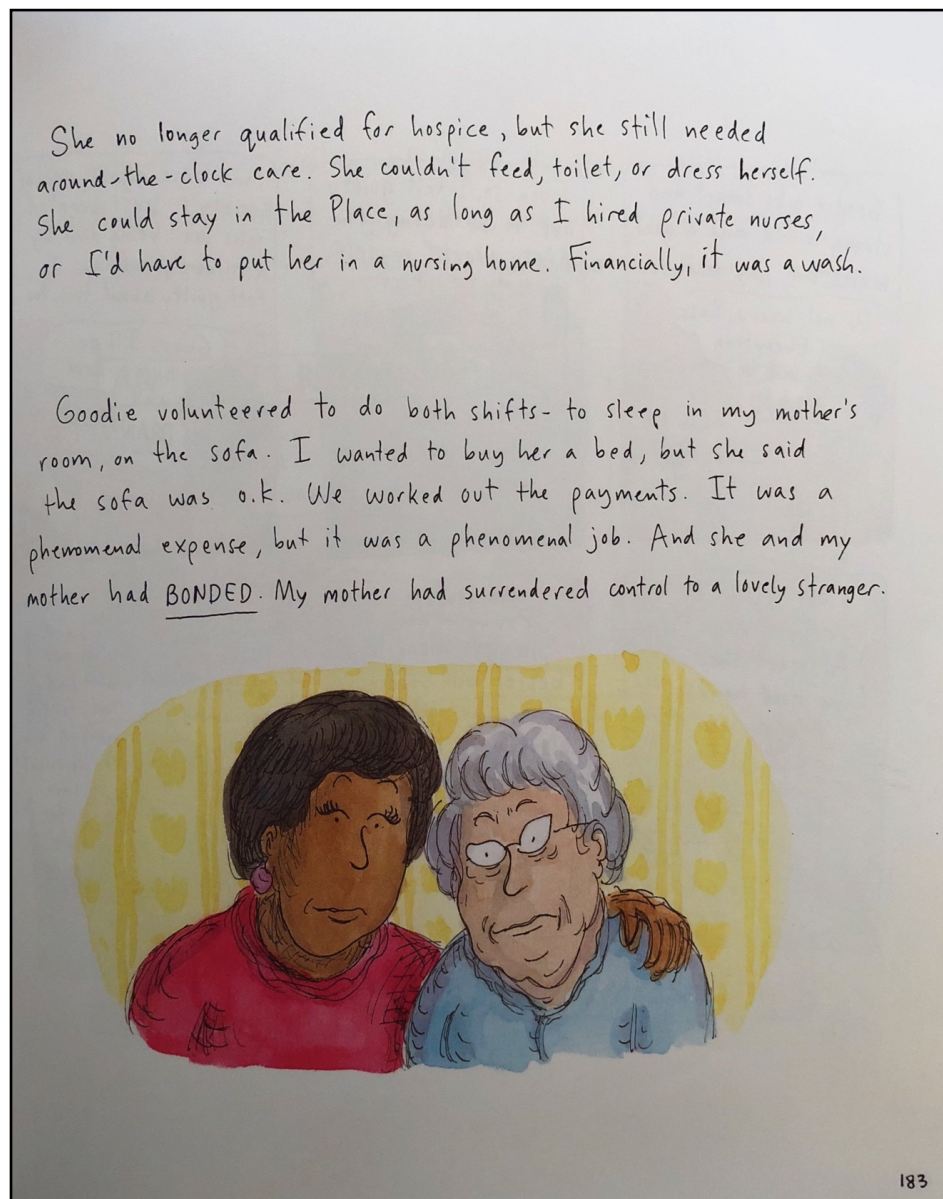 She no longer qualified for hospice, but she still needed
around-the-clock care. She couldn't feed, toilet, or dress herself.
She could stay in the Place, as long as I hired private nurses,
or I'd have to put her in a nursing home. Financially, it was a wash.
Goodie volunteered to do both shifts- to sleep in my mother's
room, on the sofa. I wanted to buy her a bed, but she said
the sofa was o.k. We worked out the payments. It was a
phenomenal expense, but it was a phenomenal job. And she and my
mother had BONDED. My mother had surrendered control to a lovely stranger.
183